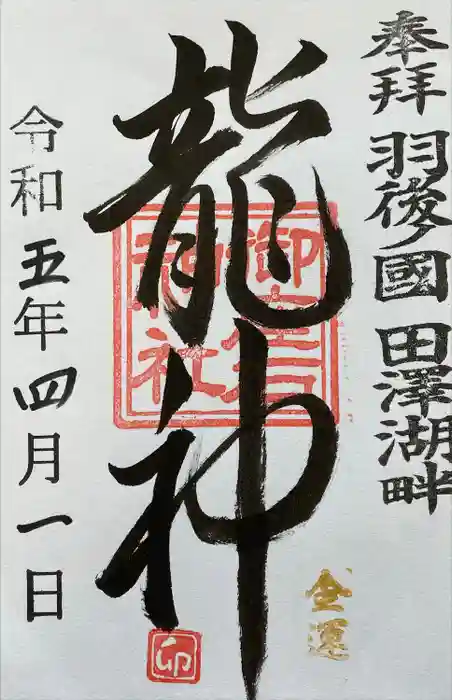 奉拝 羽後ノ國 田澤湖畔
龍神
御座石神社
金運
卯
令和五年四月一日